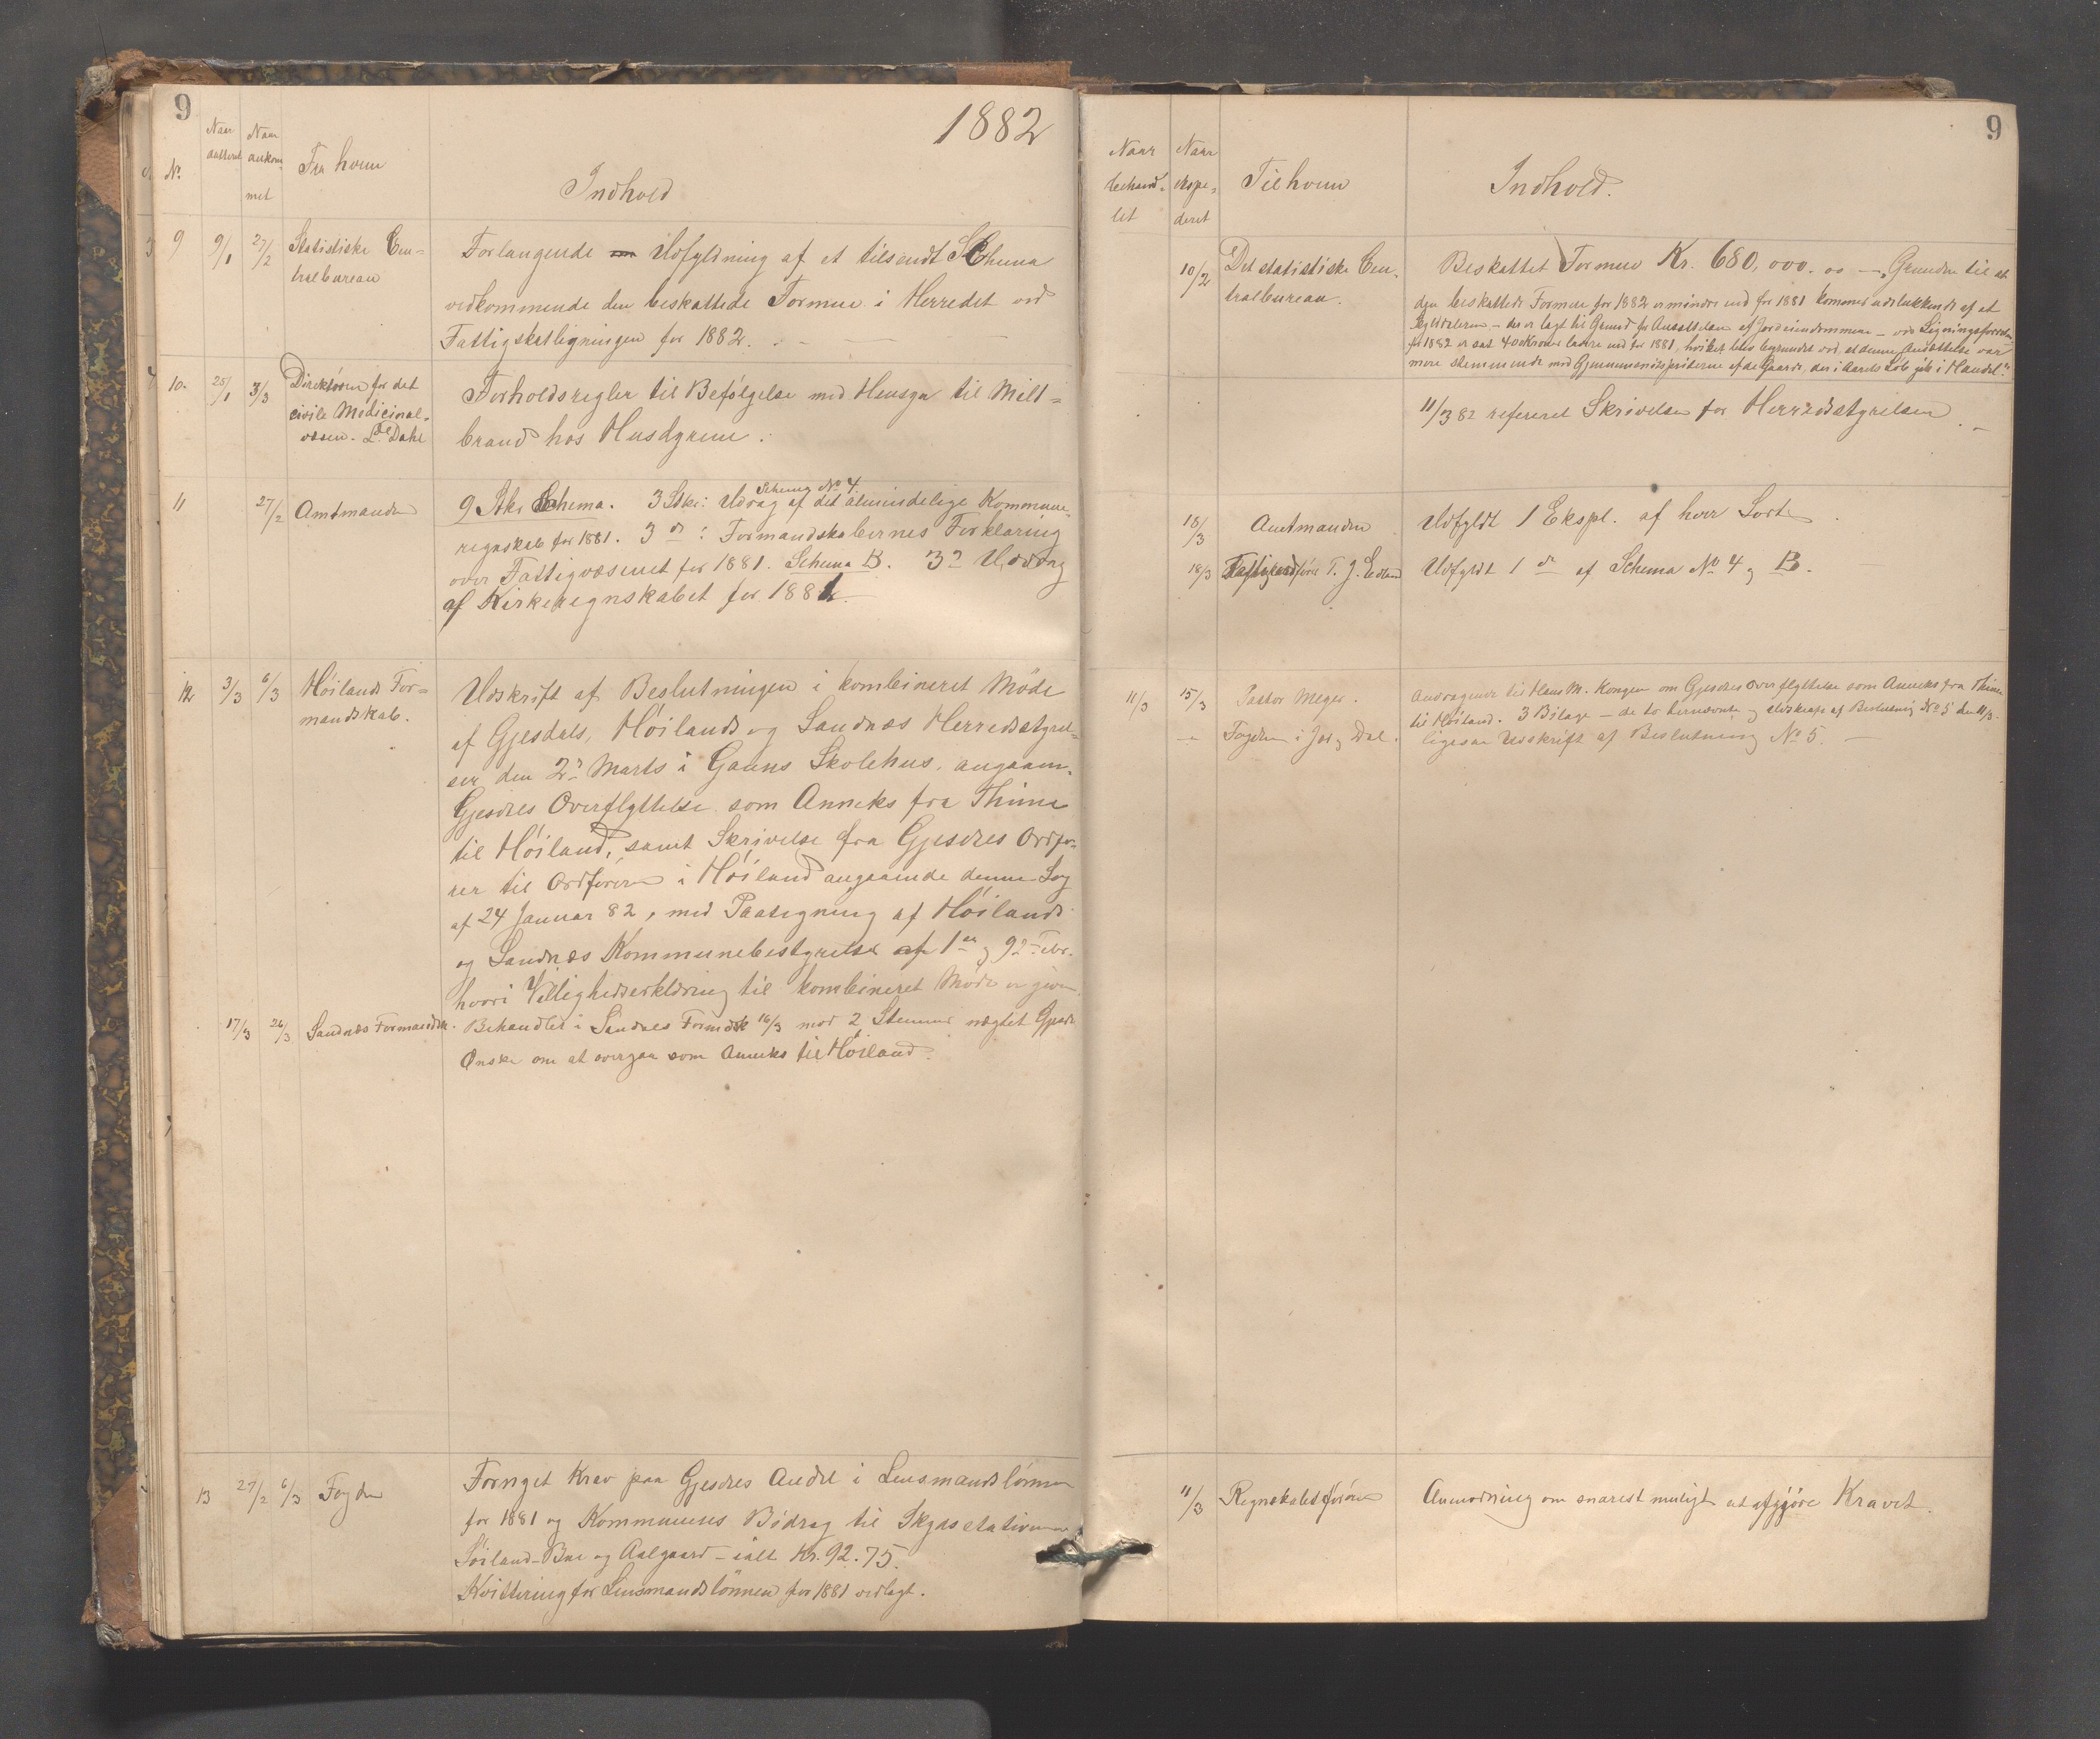 9
1882
No.
Naar
datteret
Naar
ankom-
met
Fra hvem
Indhold
9
9/1
27/2
Statistiske Cen-
tralbureau
Forlangende Udfyldning af et tilsendt Schema
vedkommende den beskattede Formue i Herredet ved
Fattigskatligningen for 1882.
10.
25/1
3/3
Direktøren for det
civile Medicinal-
væsen. L. Dahl
Forholdsregler til Befølgelse med Hensyn til Milt-
brand hos Husdyrene.
11
27/2
Amtmanden
9 Stk. Schema. 3 Stkr: Udrag af det almindelige Kommune-
Schema No 4
regnskab for 1881. 3 do: Formandskabernes Forklaring
over Fattigvæsenet for 1881. Schema B. 3 do Uddrag
af Kirkeregnskabet for 1881.
12
3/3
6/3
Höilands For-
mandskab.
Udskrift af Beslutningen i kombineret Møde
af Gjesdals, Höilands og Sandnæs Herredsstyrel-
ser den 2den Marts i Gauns Skolehus, angaaen-
Gjesdals Overflyttelse som Anneks fra Thime
til Höiland, samt Skrivelse fra Gjesdals Ordfø-
rer til Ordføreren i Höiland angaaende denne Sag
af 24 Januar 82, med Paategning af Höilands
og Sandnæs Kommunebestyrelse af 1ste og 9de Febr.
hvori Villighedserklæring til kombineret Møde er given.
17/3
26/3
Sandnæs Formandsk.
Behandlet i Sandnes Formdsk 16/3 mod 2 Stemmer nægtet Gjesd.
Ønske om at overgaa som Anneks til Höiland.
13
27/2
6/3
Fogden
Fornyet Krav paa Gjesdals Andel i Lensmandslønnen
for 1881 og Kommunens Bidrag til Skydsstationerne
Söiland-Bue og Aalgaard - ialt Kr. 92.75.
Kvittering for Lensmandslönnen for 1881 vedlagt.
9
Naar
behand-
let
Naar
ekspe-
deret
Til hvem
Indhold.
10/2
Det statistiske Cen-
tralbureau.
Beskattet Formue Kr. 680,000.00 — "Grunden til at
den beskattede Formue for 1882 er mindre end for 1881 kommer udelukkende af at
Skylddaleren - der er lagt til Grund for Ansættelsen af Jordeiendommene - ved Ligningsforretn.
for 1882 er sat 400 Kroner lavere end for 1881, hvilket blev begrundet ved, at denne Ansættelse var
mere stemmende med Gjennemsnitspriserne af de Gaarde, der i Aarets Løb gik i Handel."
11/3 82 refereret Skrivelsen for Herredsstyrelsen.
18/3
Amtmanden
Udfyldt 1 Ekspl. af hver Sort
18/3
T. J. Edland
Udfyldt 1 do af Schema No 4 og B.
11/3
15/3
Pastor Meyer.
Andragende til Hans M. Kongen om Gjesdals Overflyttelse som Anneks fra Thime
til Höiland. 3 Bilage - de to hernævnte og Udskrift af Beslutning No 5 den 11/3.
Fogden i Jæd. og Dal.
ligesaa Udskrift af Beslutning No 5.
11/3
Regnskabsføreren
Anmodning om snarest muligt at afgjøre Kravet.